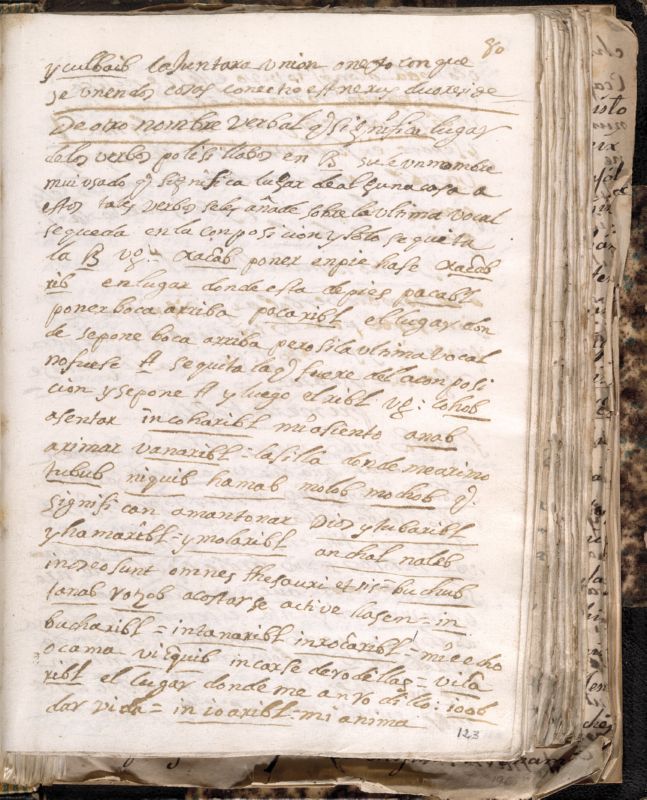 80
y culbaib la Juntara vnion o nesto con que
se vnen dos cosas conectio est nexus duorum
De otro nombre verbal q̃ significa lugar
delos verbos polisilabos en B sale vn nombre
mui vsado q̃ significa lugar de alguna cosa a
estos tales verbos seles añade sobre la vltima vocal
se queda en la conposicion y solo se quita
la B vg: xacab poner en pie hase xacab
ribl en lugar donde esta de pies pacabl
poner boca arriba pacaribl el lugar don
de se pone boca arriba pero si la vltima vocal
no fuese A se quita la q̃ fuere de la conposi
cion y se pone A y luego el ribl vg: cohob
asentar in coharibl mi asiento anab
arimar vanaribl = la silla donde me arimo
tubub niquib hamab molob mochob q̃
significan amontonar Dios y tubaribl
yhamaribl = y molaribl onchal naleb
in deo sunt omnes thesauri et sis = buchub
tanab rotzob acostarse active hasen = in
bucharibl = in tanaribl in rotzaribl = mi echo
o cama viquib incarse de rodillas =
ribl el lugar donde me anrodillo: ioob
dar vida = in ioaribl = mi anima
123